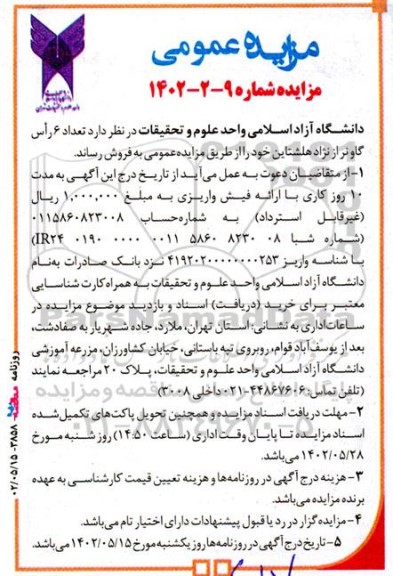 مزایده عمومی
مزایده شماره ۹-۲-۱۴۰۲
دانشگاه آزاد اسلامی واحد علوم و تحقیقات در نظر دارد تعداد ۶ رأس
گاو نر از نژاد هلشتاین خود را از طریق مزایده عمومی به فروش رساند.
۱- از متقاضیان دعوت به عمل می‌آید از تاریخ درج این آگهی به مدت
۱۰ روز کاری با ارائه فیش واریزی به مبلغ ۱,۰۰۰,۰۰۰ ریال
(غیرقابل استرداد) به شماره‌حساب ۰۱۱۵۸۶۰۸۲۳۰۰۸
(شماره شبا ۰۸ ۸۲۳۰ ۵۸۶۰ ۰۰۱۱ ۰۰۰۰ ۰۱۹۰ IR۲۴)
با شناسه واریز ۴۱۹۲۰۲۰۰۰۰۰۰۰۰۲۵۳ نزد بانک صادرات به‌نام
دانشگاه آزاد اسلامی واحد علوم و تحقیقات به همراه کارت شناسایی
معتبر برای خرید (دریافت) اسناد و بازدید موضوع مزایده در
ساعات اداری به نشانی: استان تهران، ملارد، جاده شهریار به صفادشت،
بعد از یوسف‌آباد قوام، روبروی تپه باستانی، خیابان کشاورزان، مزرعه آموزشی
دانشگاه آزاد اسلامی واحد علوم و تحقیقات، پلاک ۲۰ مراجعه نمایند
(تلفن تماس: ۴۴۸۶۷۶۰۶-۰۲۱ داخلی ۳۰۰۸)
۲- مهلت دریافت اسناد مزایده و همچنین تحویل پاکت‌های تکمیل‌شده
اسناد مزایده تا پایان وقت اداری (ساعت ۱۴:۵۰) روز شنبه مورخ
۱۴۰۲/۰۵/۲۸ می‌باشد.
۳- هزینه درج آگهی در روزنامه‌ها و هزینه تعیین قیمت کارشناسی به عهده
برنده مزایده می‌باشد.
۴- مزایده‌گزار در رد یا قبول پیشنهادات دارای اختیار تام می‌باشد.
۵- تاریخ درج آگهی در روزنامه‌ها روز یکشنبه مورخ ۱۴۰۲/۰۵/۱۵ می‌باشد.
روزنامه ۳۸۵۸ ۰۲/۰۵/۱۵
ParsNamadData
پایگاه اطلاع رسانی مناقصه و مزایده
۰۲۱-۸۸۳۴۹۶۷۰-۵